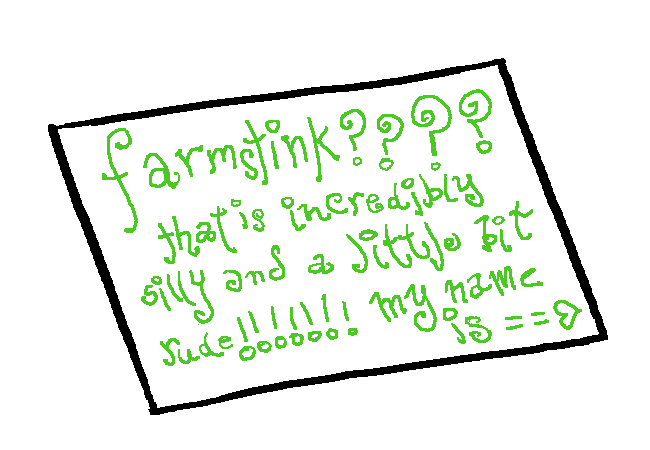 farmstink????
that is incredibly
silly and a little bit
rude!!!!!!! my name
is ==>